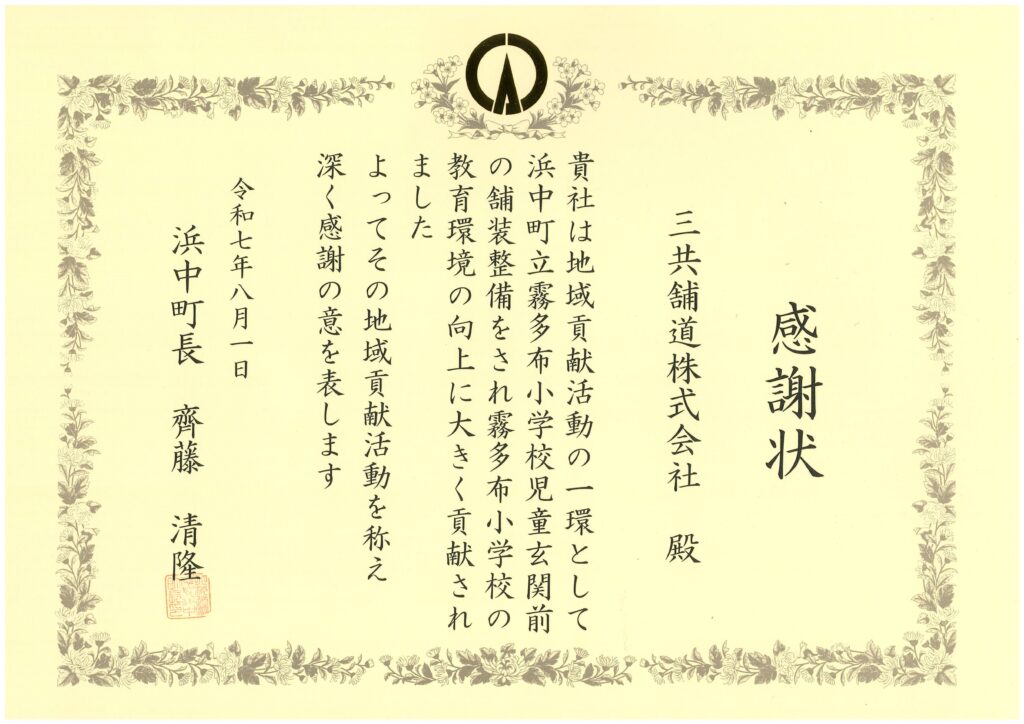 感謝状
三共舗道株式会社 殿
貴社は地域貢献活動の一環として
浜中町立霧多布小学校児童玄関前
の舗装整備をされ霧多布小学校の
教育環境の向上に大きく貢献され
ました
よってその地域貢献活動を称え
深く感謝の意を表します
令和七年八月一日
浜中町長 齊藤 清隆